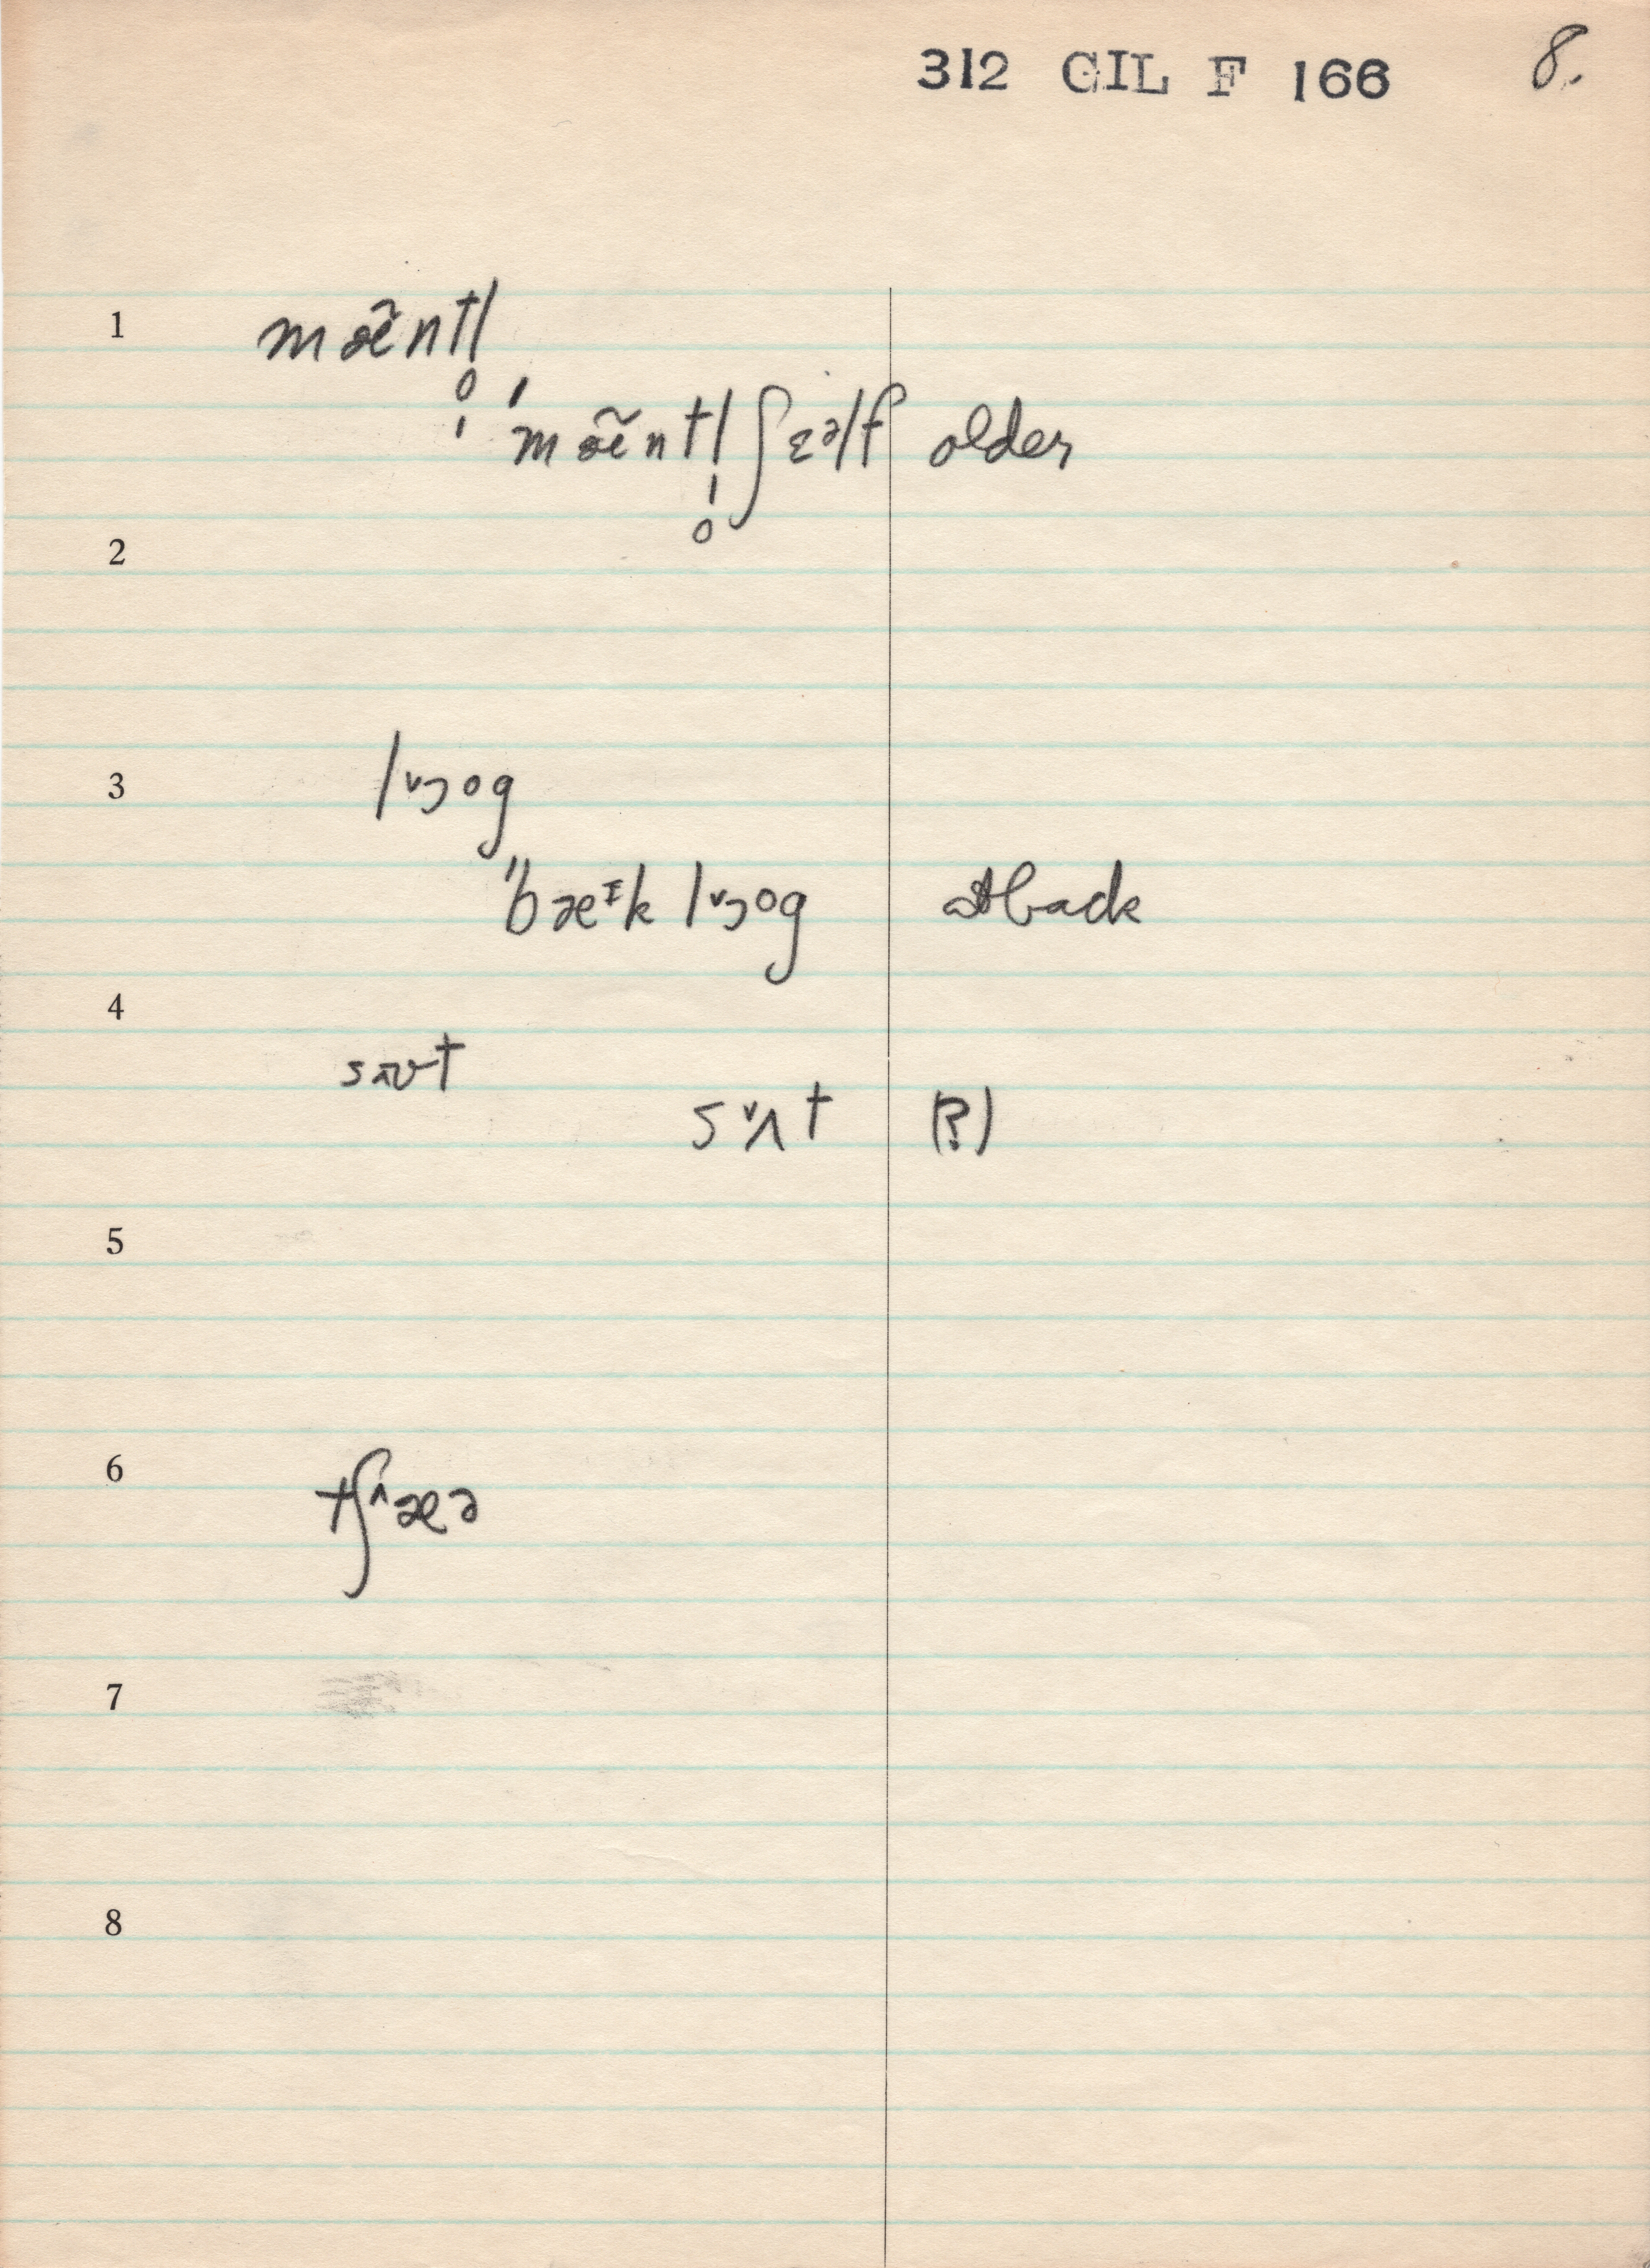 312 GIL F 166 8.
1 mæ̃ntl̩̥
ˈmæ̃ntl̩̥ʃɛəlf older
2
3 lˇɔog
"bæᶦk lˇɔog at back
4
sʌʊt
sˇʌt (?)
5
6 tʃ^æə
7
8